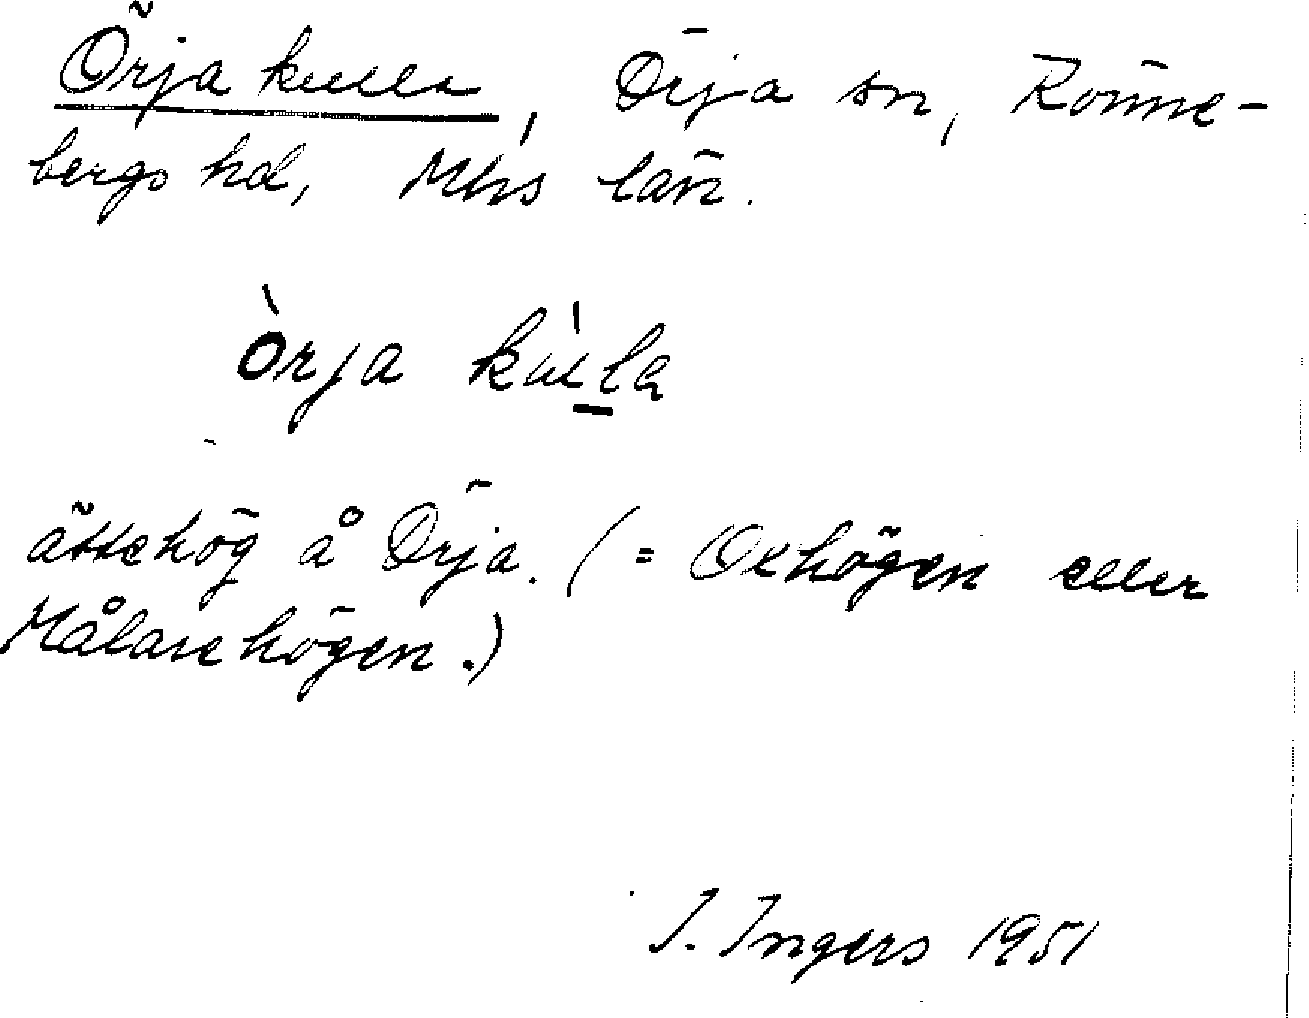 Örja kulla, Örja sn, Rönne-
bergs hd, Mhs län.
òrja kùl̲la
ättehög å Örja. (= Okhögen eller
Målarehögen.)
I. Ingers 1951